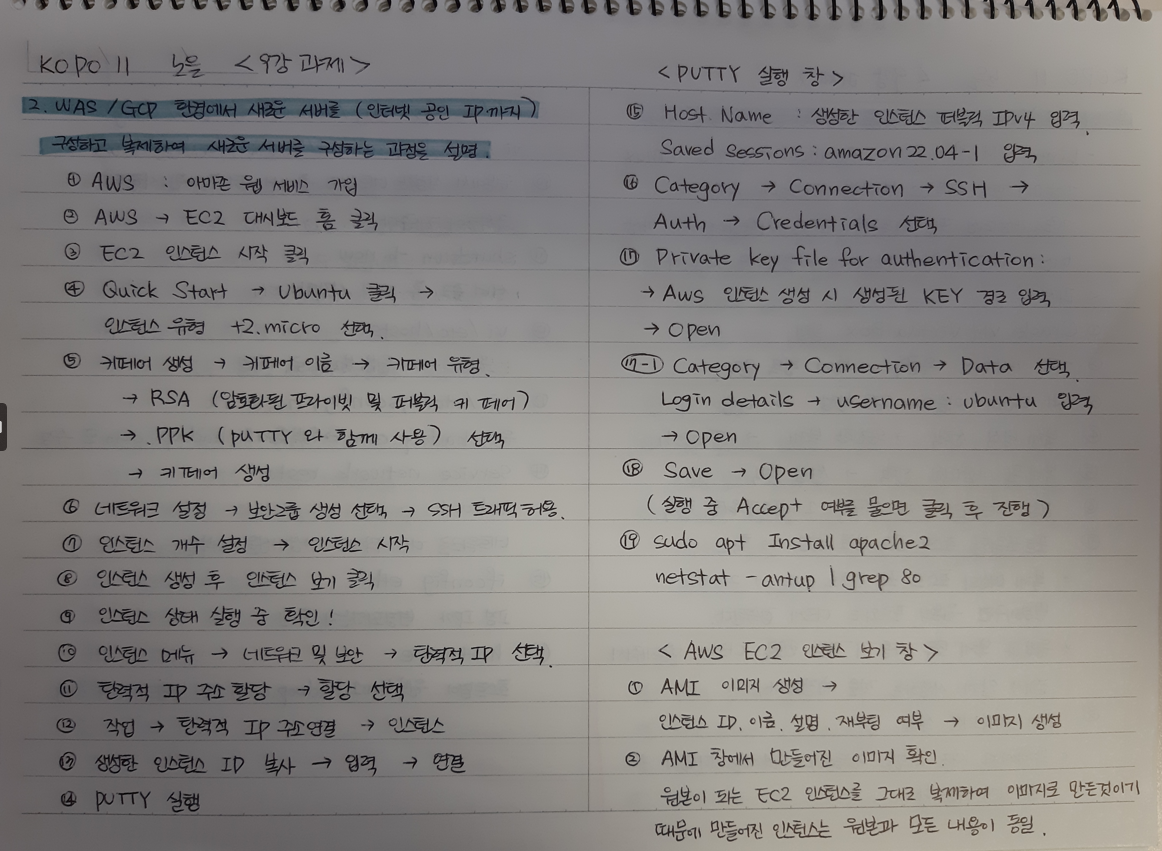 KOPO 11 노을 <9강 과제>
2. WAS/GCP 환경에서 새로운 서버를 (인터넷 공인 IP까지)
구성하고 복제하여 새로운 서버를 구성하는 과정을 설명.
① AWS : 아마존 웹 서비스 가입
② AWS → EC2 대시보드 홈 클릭
③ EC2 인스턴스 시작 클릭
④ Quick Start → Ubuntu 클릭 →
인스턴스 유형 t2.micro 선택.
⑤ 키페어 생성 → 키페어 이름 → 키페어 유형.
→ RSA (암호화된 프라이빗 및 퍼블릭 키 페어)
→ .PPK (PUTTY 와 함께 사용) 선택
→ 키페어 생성
⑥ 네트워크 설정 → 보안그룹 생성 선택 → SSH 트래픽 허용.
⑦ 인스턴스 개수 설정 → 인스턴스 시작
⑧ 인스턴스 생성 후 인스턴스 보기 클릭
⑨ 인스턴스 상태 실행 중 확인!
⑩ 인스턴스 메뉴 → 네트워크 및 보안 → 탄력적 IP 선택.
⑪ 탄력적 IP 주소 할당 → 할당 선택
⑫ 작업 → 탄력적 IP 주소연결 → 인스턴스
⑬ 생성한 인스턴스 ID 복사 → 입력 → 연결
⑭ PUTTY 실행
<PUTTY 실행 창>
⑮ Host Name : 생성한 인스턴스 퍼블릭 IPv4 입력.
Saved Sessions : amazon22.04-1 입력
⑯ Category → Connection → SSH →
Auth → Credentials 선택
⑰ Private key file for authentication :
→ Aws 인스턴스 생성 시 생성된 KEY 경로 입력
→ Open
⑰-1 Category → Connection → Data 선택.
Login details → username : ubuntu 입력
→ Open
⑱ Save → Open
(실행 중 Accept 여부를 물으면 클릭 후 진행)
⑲ sudo apt Install apache2
netstat -antup | grep 80
<AWS EC2 인스턴스 보기 창>
① AMI 이미지 생성 →
인스턴스 ID. 이름. 설명. 재부팅 여부 → 이미지 생성
② AMI 창에서 만들어진 이미지 확인.
원본이 되는 EC2 인스턴스를 그대로 복제하여 이미지로 만든것이기
때문에 만들어진 인스턴스는 원본과 모든 내용이 동일.